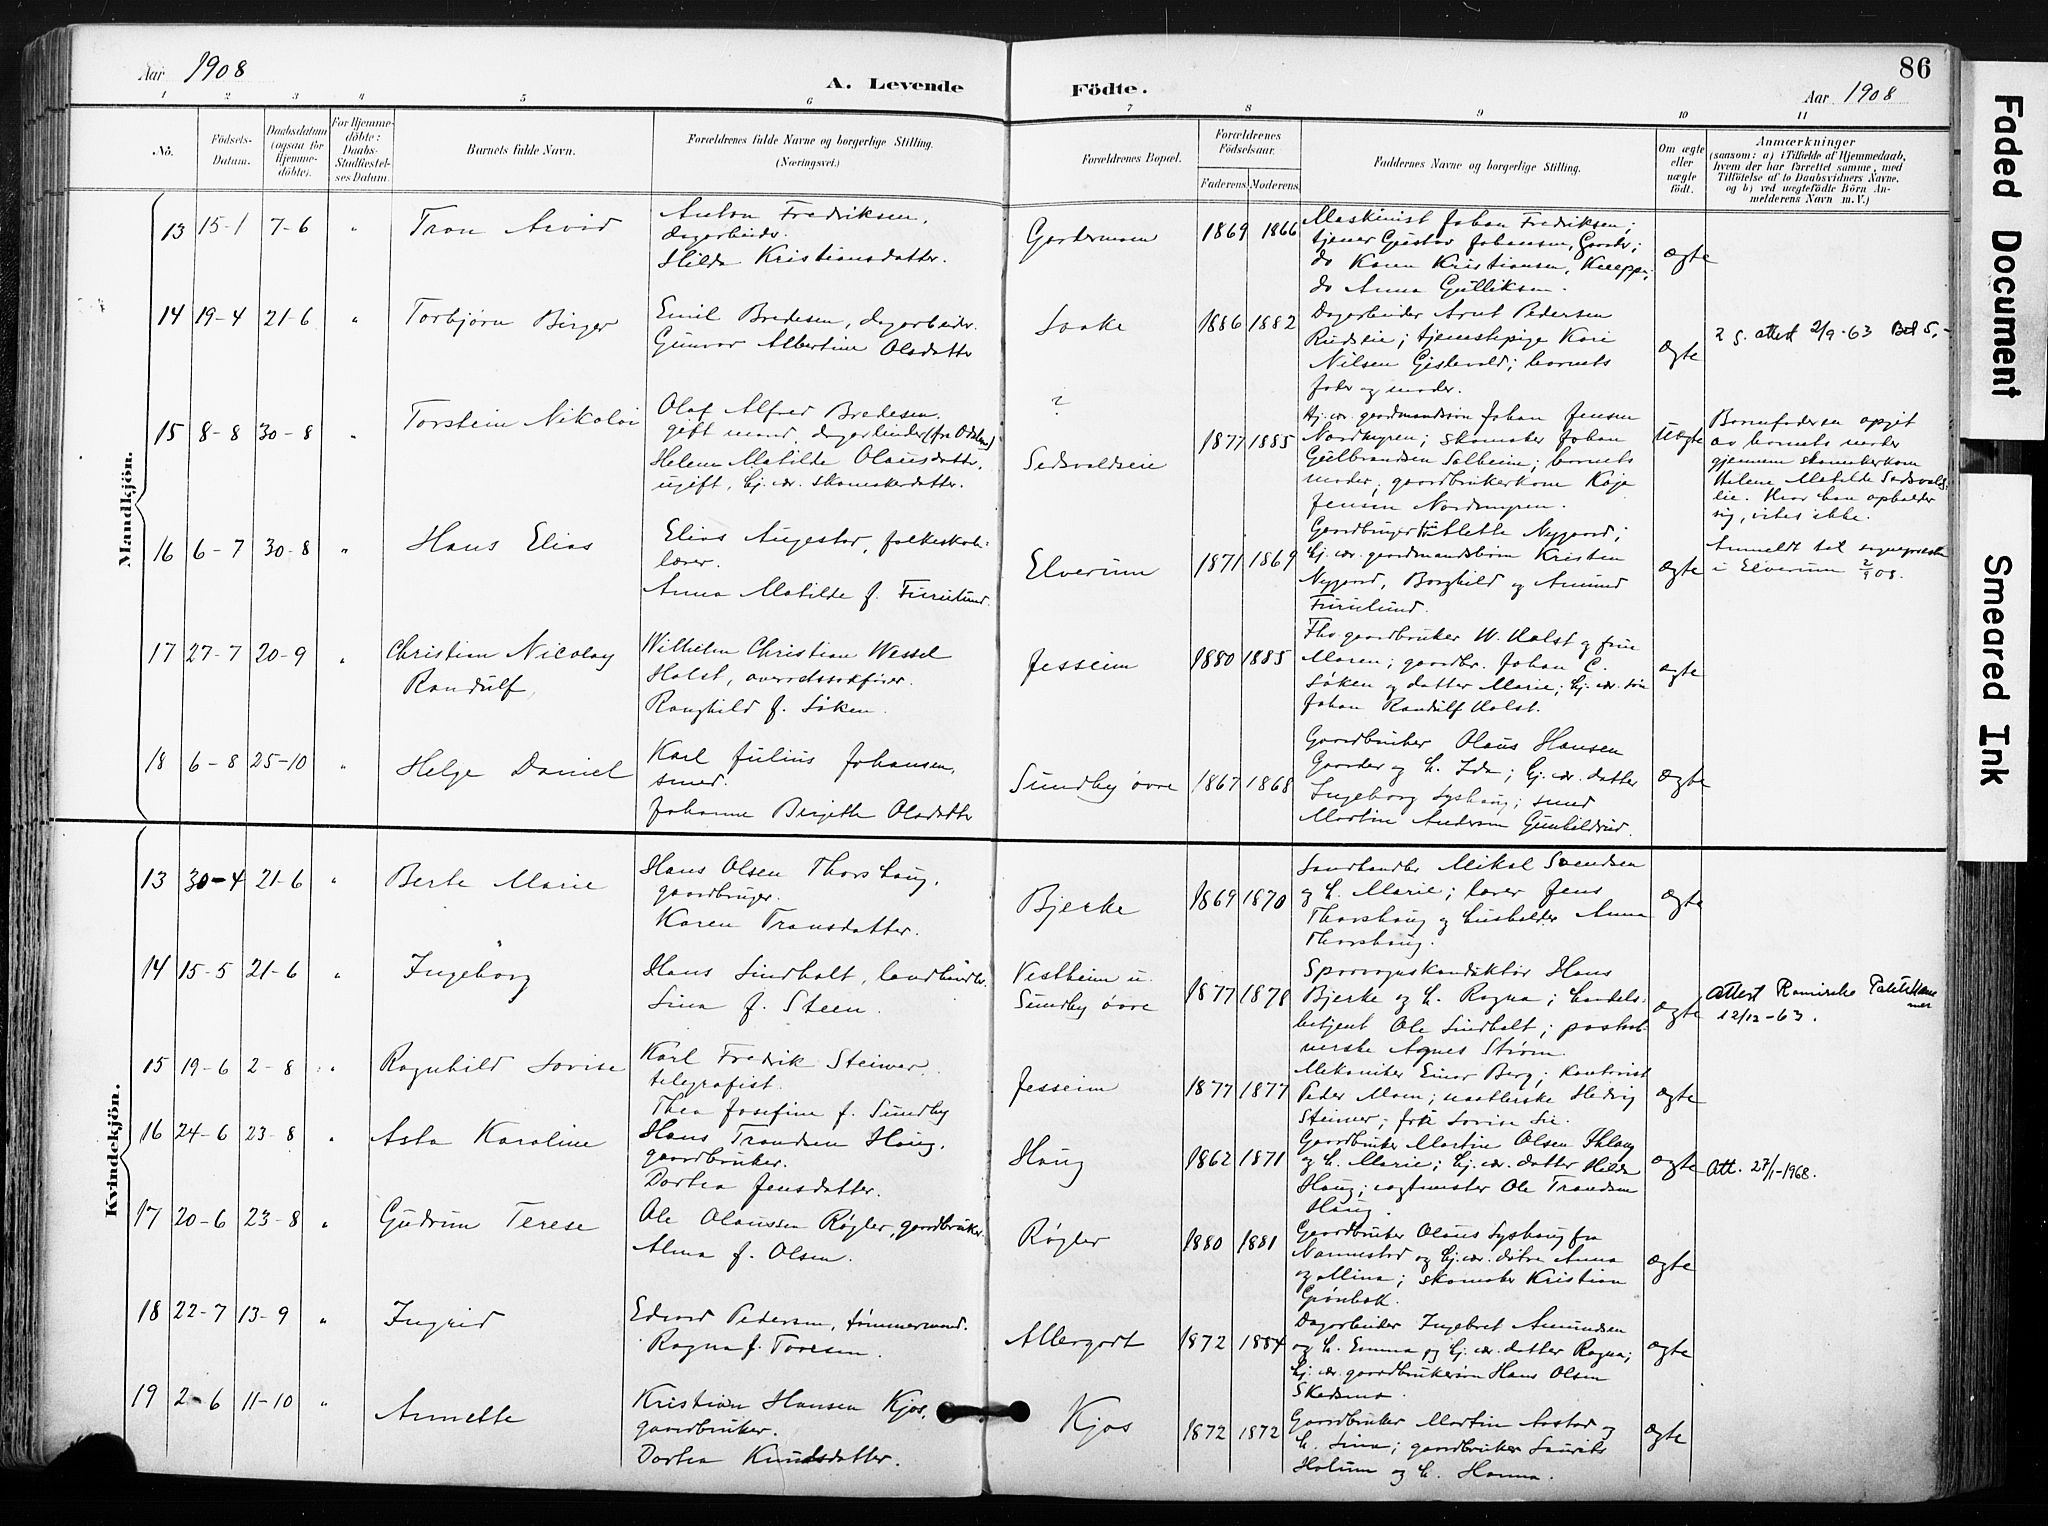 Aar 1908
A. Levende Födte.
86
Aar 1908
1 2 3 4 5 6 7 8 9 10 11
No.
Födsels-Datum.
Daabsdatum (ogsaa for Hjemme-döbte).
For Hjemme-döbte: Daabs-Stadfæstel-ses Datum.
Barnets fulde Navn.
Forældrenes fulde Navne og borgerlige Stilling. (Næringsvei.)
Forældrenes Bopæl.
Forældrenes Födselsaar.
Faderens. Moderens.
Faddernes Navne og borgerlige Stilling.
Om ægte eller uægte födt.
Anmærkninger
(saasom: a) i Tilfælde af Hjemmedaab,
hvem der har forrettet samme, med
Tilföielse af to Daabsvidners Navne,
og b) ved uægtefödte Börn An-
melderens Navn m. V.)
Mandkjön.
13 15-1 7-6 " Tron Arvid
Anton Fredriksen,
dagarbeider.
Hilda Kristiansdatter.
Gardermoen 1869 1866
Maskinist Johan Fredriksen;
tjener Gustav Johansen, Gaarder;
do Karen Kristiansen,
do Anna Gulliksen.
ægte
14 19-4 21-6 " Torbjørn Birger
Emil Bredesen, dagarbeider.
Gunvor Albertine Olsdatter
1886 1882
Dagarbeider Arnt Pedersen
Rudseie; tjenestepige Kari
Nilsen Gislevold; barnets
fader og moder.
ægte
2 g. attest 2/9-63 Bet 5,-
15 8-8 30-8 " Torstein Nikolai
Olaf Alfred Bredesen,
gift mand, dagarbeider (fra Odalen)
Helene Matilde Olausdatter,
ugift, hj. vær. skomakerdatter.
?
Sedsvaldseie 1877 1885
Hj. vær. gaardmandssøn Johan Jensen
Nordmyren; skomaker Johan
Gulbrandsen Solheim; barnets
moder; gaardbrukerkone Kaja
Jensen Nordmyren.
Uægte
Barnefaderen opgit
av barnets moder
gjennem skomakerkone
Helene Matilde Sedsvalds-
eie. Hvor han opholder
sig, vites ikke.
16 6-7 30-8 " Hans Elias
Elias Augestad, folkeskole-
lærer.
Anna Matilde f. Furulund.
Elverum 1871 1869
Gaardbruger Alette Nygaard;
hj. vær. gaardmandsbørn Kristen
Nygaard, Borghild og Amund
Furulund.
ægte
Anmeldt til sogneprесten
i Elverum 2/9 08.
17 27-7 20-9 " Christian Nicolay
Randulf
Wilhelm Christian Wessel
Holst, overretssakfører.
Ranghild f. Løken.
Jessheim 1880 1885
Fhv. gaardbruker W. Holst og frue
Maren; gaardbr. Johan C.
Løken og datter Marie; hj. vær. søn
Johan Randulf Holst.
ægte
18 6-8 25-10 " Helge Daniel
Karl Julius Johansen,
smed.
Johanne Birgitte Olsdatter
Sundby øvre 1867 1868
Gaardbruker Olaus Hansen
Gaarder og h. Ida; hj. vær. datter
Ingeborg Lyshaug; smed
Martin Andersen Gunhildrud.
ægte
Kvindekjön.
13 30-4 21-6 " Berte Marie
Hans Olsen Thorshaug,
gaardbruger.
Karen Transdatter.
Bjerke 1869 1870
Landhandler Mikal Svendsen
og h. Marie; lærer Jens
Thorshaug og husholder. Anna
Thorshaug.
ægte
14 15-5 21-6 " Ingeborg
Hans Lindholt, landhandler.
Lina f. Steen.
Vestheim u.
Sundby øvre 1877 1878
Sporvognskonduktør Hans
Bjerke og h. Ragna; handels-
betjent Ole Lindholt; postaab-
nerske Agnes Strøm.
ægte
Attest
12/12-63.
15 19-6 2-8 " Ragnhild Lovise
Karl Fredrik Steimer.
telegrafist.
Thea Josefine f. Sundby
Jessheim 1877 1877
Mekaniker Einar Berg; kontorist
Peder Moen; Hedvig
Steimer; Lovise Lie.
ægte
16 24-6 23-8 " Asta Karoline
Hans Trondsen Haug,
gaardbruker.
Dortea Jensdatter.
Haug 1862 1871
Gaardbruker Martin Olsen
og h. Marie; hj. vær. datter Hilda
Haug; vagtmester Ole Trondsen
Haug.
ægte
Att. 27/1-1968.
17 20-6 23-8 " Gudrun Terese
Ole Olaussen Røgler, gaardbruker.
Alma f. Olsen.
Røgler 1880 1881
Gaardbruker Olaus Lyshaug fra
Nannestad og hj. vær. døtre Anna
og Mina; skomaker Kristian
Grønbak.
ægte
18 22-7 13-9 " Ingrid
Edvard Pedersen, tømmermand.
Ragna f. Toresen.
Allergodt 1872 1884
Dagarbeider Ingebret Amundsen
og h. Emma og hj. vær. datter Ragna;
hj. vær. gaardbrukersøn Hans Olsen
Skedsmo.
ægte
19 2-6 11-10 " Annette
Kristian Hansen Kjos,
gaardbruker.
Dortea Knudsdatter.
Kjos 1872 1872
Gaardbruker Martin Aastad og
h. Lina; gaardbruker Laurits
Holum og h. Hanna.
ægte
Faded Document
Smeared Ink